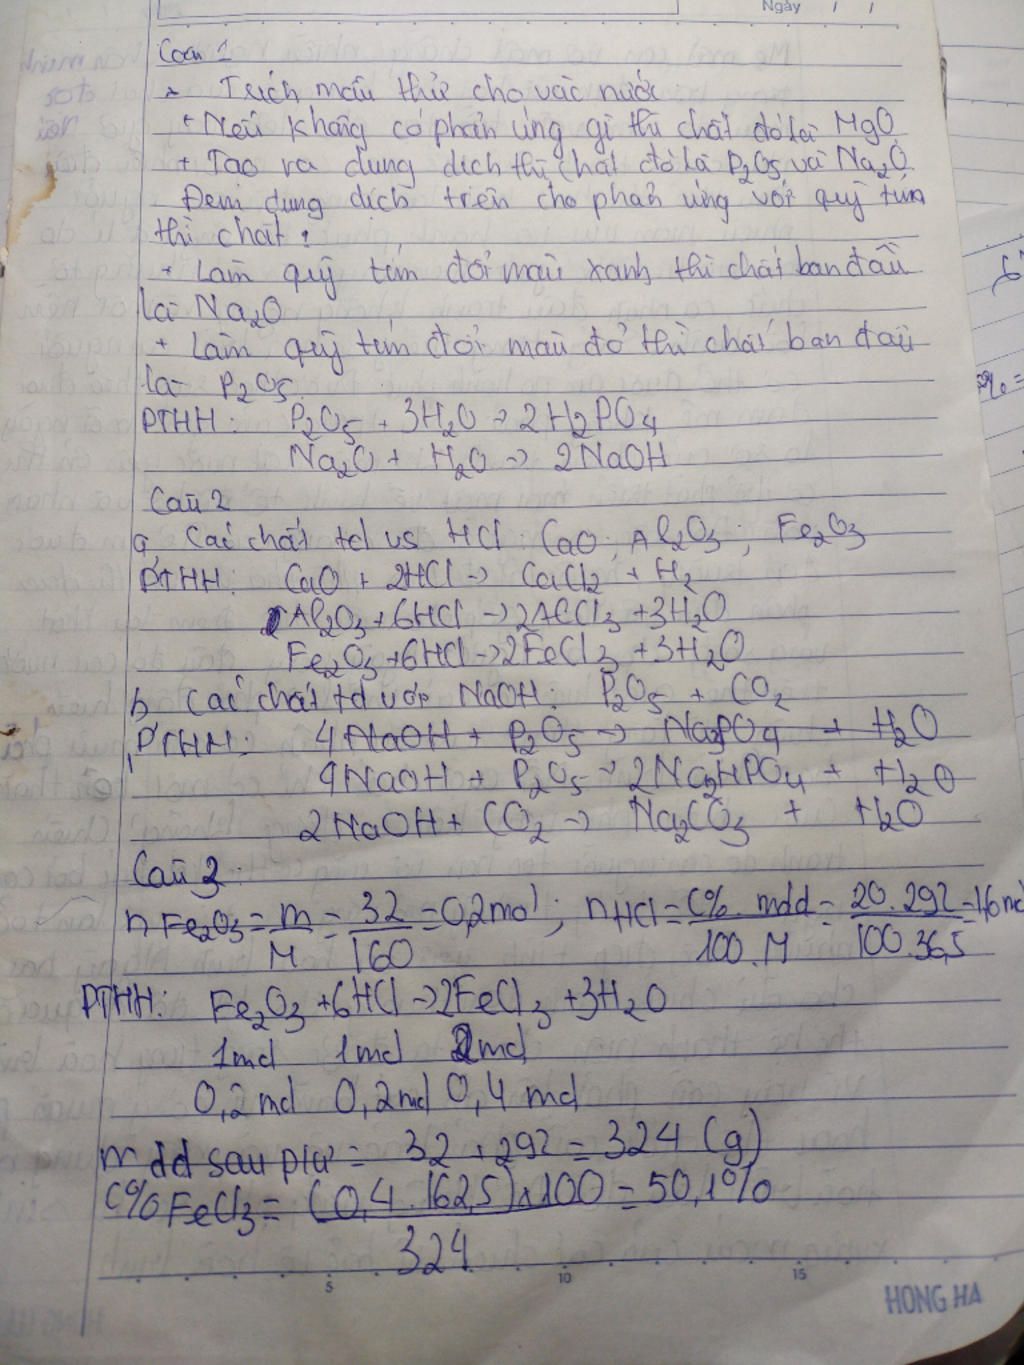 Ngày / /
Câu 1
- Trích mẫu thử cho vào nước
+ Nếu không có phản ứng gì thì chất đó là MgO
+ Tạo ra dung dịch thì chất đó là P2O5 và Na2O
Đem dung dịch trên cho phản ứng với quỳ tím
thì chất:
+ Làm quỳ tím đổi màu xanh thì chất ban đầu
là Na2O
+ Làm quỳ tím đổi màu đỏ thì chất ban đầu
là P2O5
PTHH: P2O5 + 3H2O → 2H2PO4
Na2O + H2O → 2NaOH
Câu 2
a, Các chất td vs HCl: CaO; Al2O3; Fe2O3
PTHH: CaO + 2HCl → CaCl2 + H2
Al2O3 + 6HCl → 2AlCl3 + 3H2O
Fe2O3 + 6HCl → 2FeCl3 + 3H2O
b, Các chất td với NaOH: P2O5 + CO2
PTHH: 4NaOH + P2O5 → Na3PO4 + H2O
4NaOH + P2O5 → 2Na2HPO4 + H2O
2NaOH + CO2 → Na2CO3 + H2O
Câu 3
nFe2O3 = m/M = 32/160 = 0,2mol; nHCl = C%. mdd/100.M = 20.292/100.36,5 = 1,6 mol
PTHH: Fe2O3 + 6HCl → 2FeCl3 + 3H2O
1mol 1mol 2mol
0,2mol 0,2mol 0,4 mol
m dd sau pư = 32 + 292 = 324 (g)
C% FeCl3 = (0,4.162,5)x100/324 = 50,1%
5 10 15
HONG HA